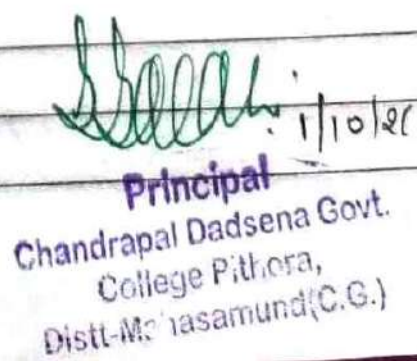 1/10/20
Principal
Chandrapal Dadsena Govt.
College Pithora,
Distt-Mahasamund(C.G.)